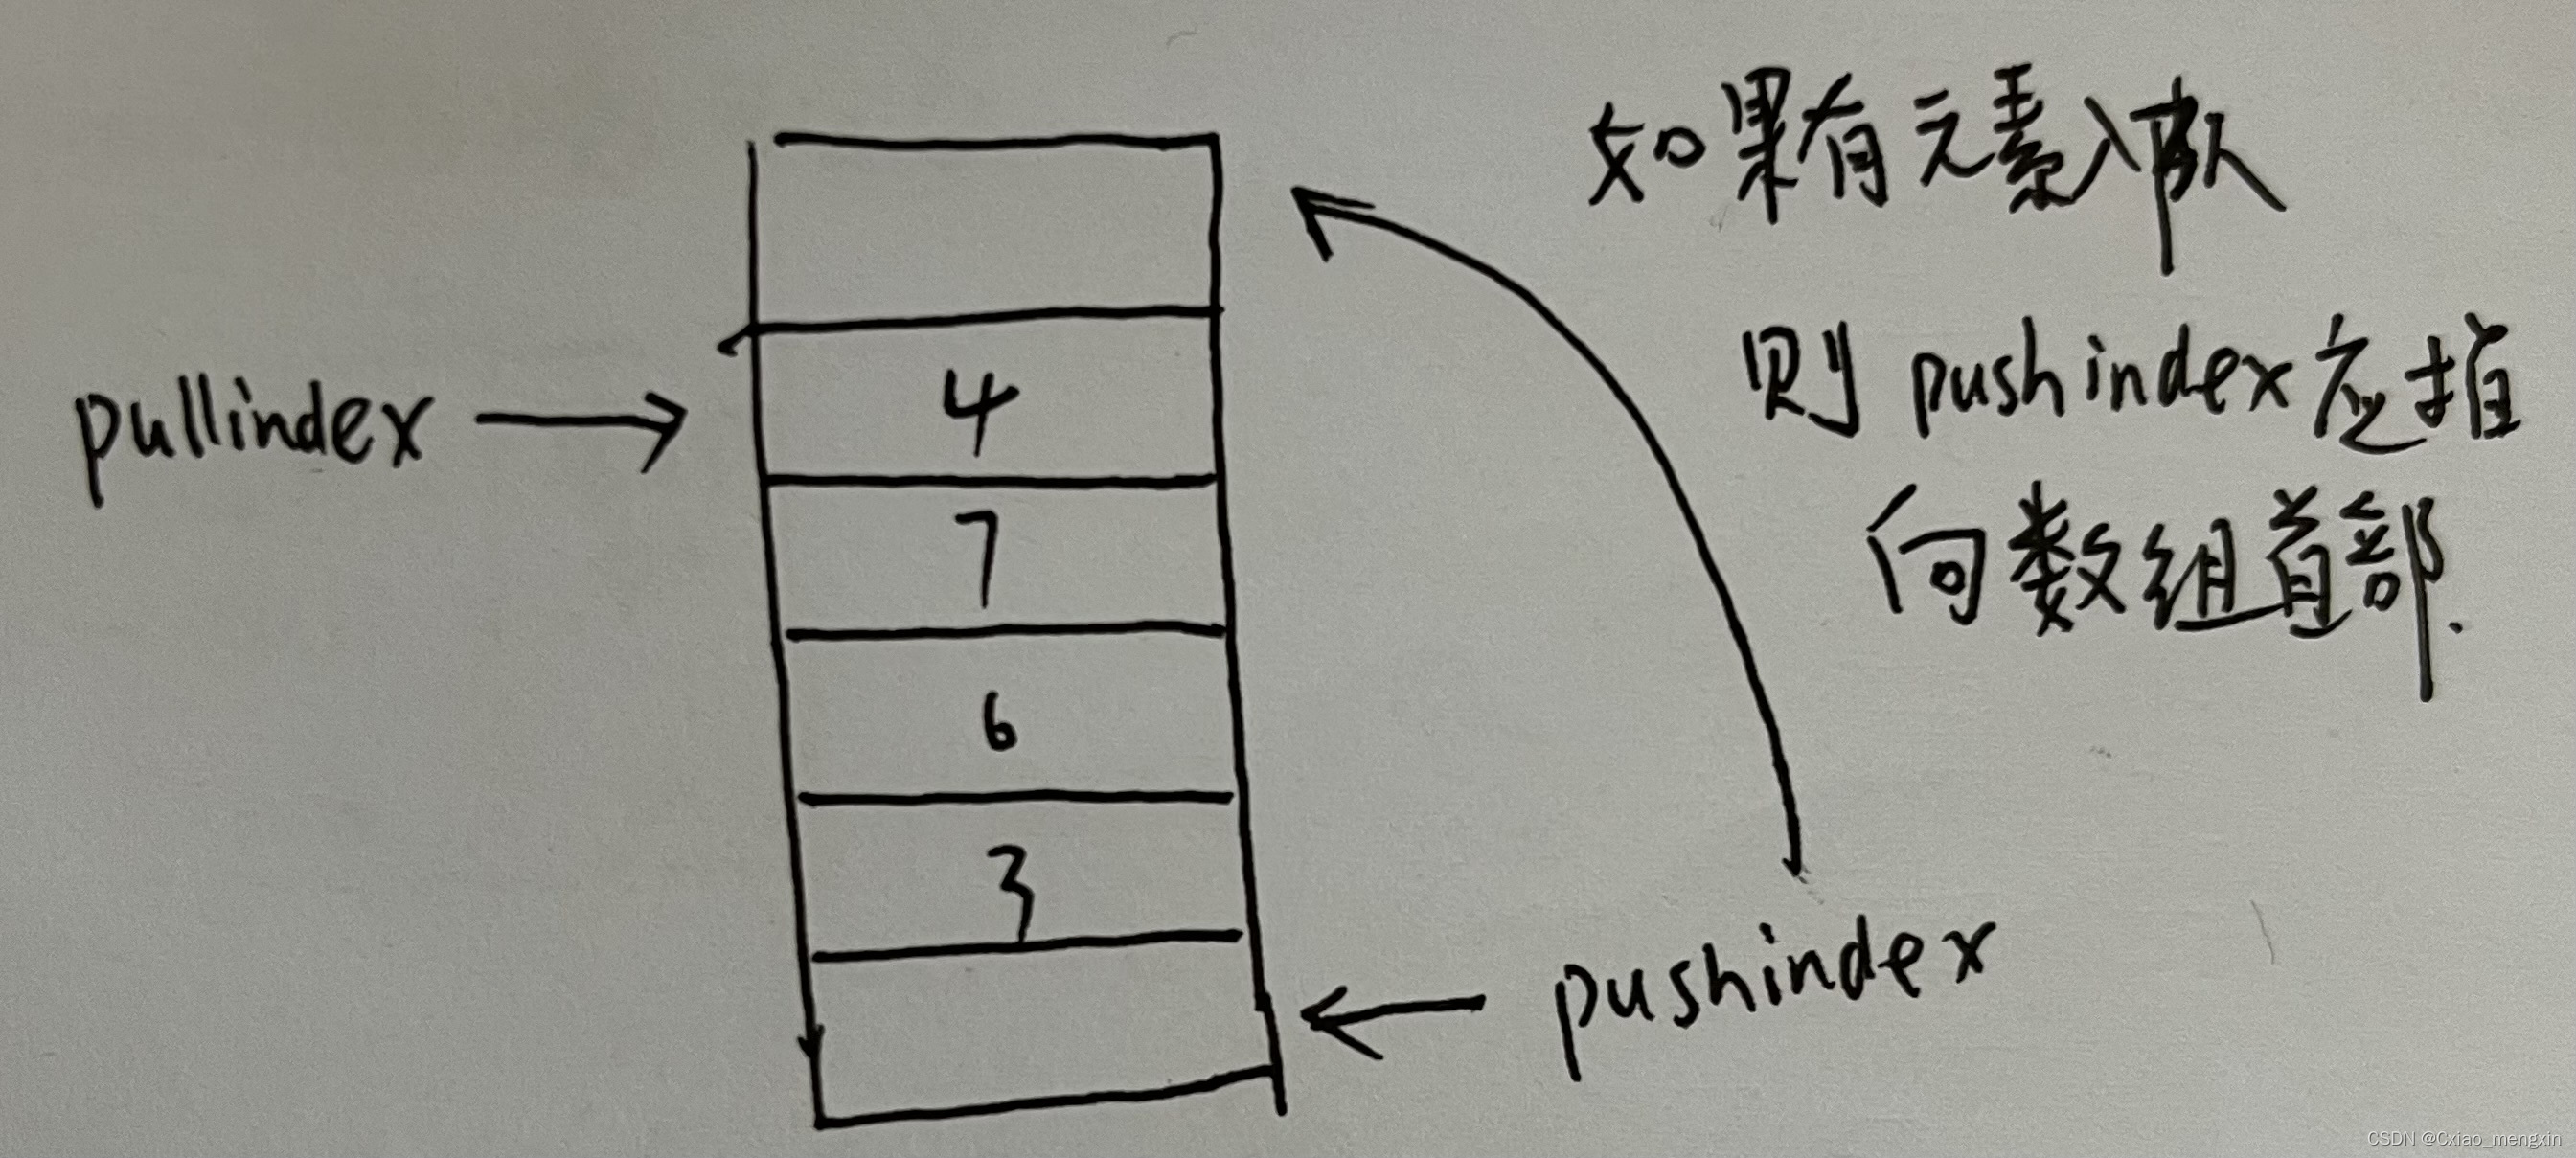 如果有元素入队
则 pushindex 应指
向数组首部.
pullindex
4
7
6
3
pushindex
CSDN @Cxiao_mengxin